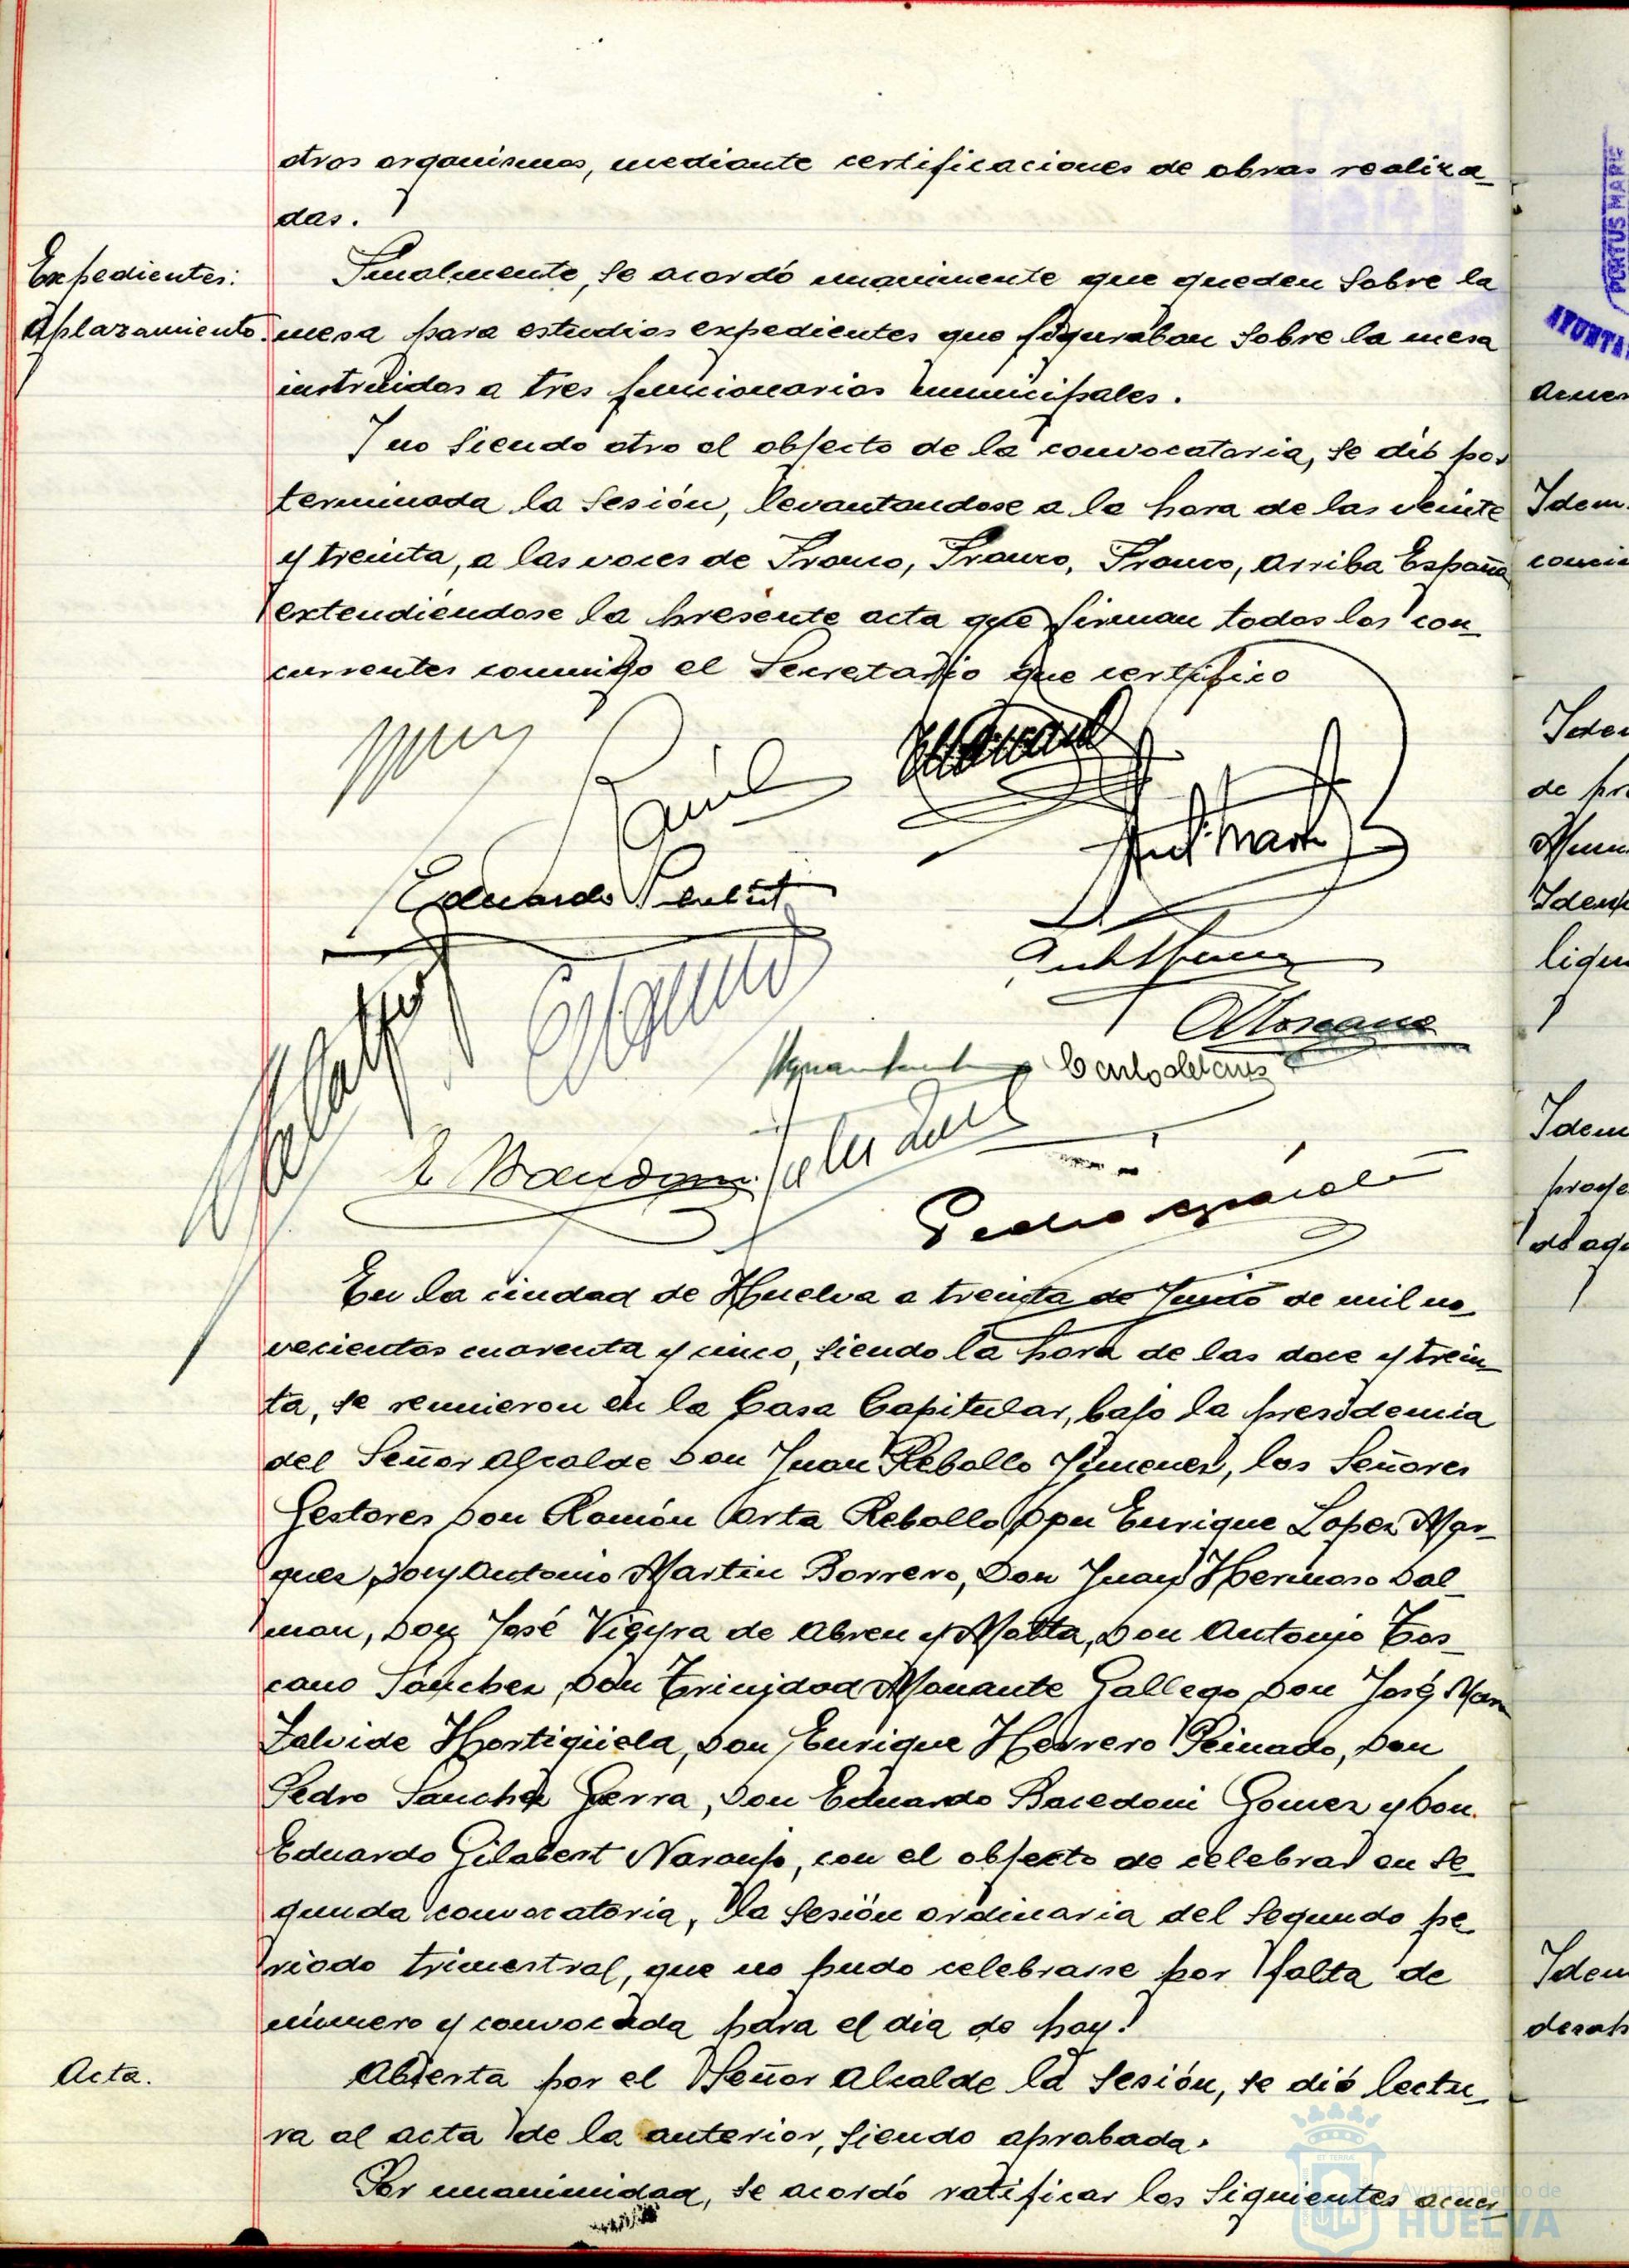 otros organismos, mediante certificaciones de obras realiza-
das.
Expedientes:
Aplazamiento.
Finalmente, se acordó unanimente que queden sobre la
mesa para estudios expedientes que figuraban sobre la mesa
instruidos a tres funcionarios municipales.
Y no siendo otro el objecto de la convocatoria, se dió por
terminada la sesión, levantandose a la hora de las veinte
y treinta, a las voces de Franco, Franco, Franco, Arriba España
extendiéndose la presente acta que firman todos los con-
currentes conmigo el Secretario que certifico
Eduardo
Ant. Martn
AToscano
Carlos del
E Bacedoni
Pedro
En la ciudad de Huelva a treinta de Junio de mil no-
vecientos cuarenta y cinco, siendo la hora de las doce y trein-
ta, se reunieron en la Casa Capitular, bajo la presidencia
del Señor Alcalde Don Juan Rebollo Jimenez, los Señores
Gestores Don Ramón Orta Rebollo, Don Enrique Lopez Mar-
quez, Don Antonio Martin Borrero, Don Juan Hermoso Dal-
man, Don José Vieyra de Abreu y Motta, Don Antonio Tos-
cano Sanchez, Don Trinidad Manante Gallego, Don José Man
Zalvide Hortigüela, Don Enrique Herrero Peinado, Don
Pedro Sanchez Gerra, Don Eduardo Bacedoni Gomez y Don
Eduardo Gilabert Naranjo, con el objecto de celebrar en se-
gunda convocatoria, la sesión ordinaria del segundo pe-
riodo trimestral, que no pudo celebrarse por falta de
número y convocada para el dia de hoy.
Acta.
Abierta por el Señor Alcalde la sesión, se dió lectu-
ra al acta de la anterior, siendo aprobada.
Por unanimidad, se acordó ratificar los siguientes acuer-
PORTUS MARIS
AYUNTA
acuer
Idem
Idem
de pr
Idem
liqui
Idem
Idem
Ayuntamiento de
HUELVA